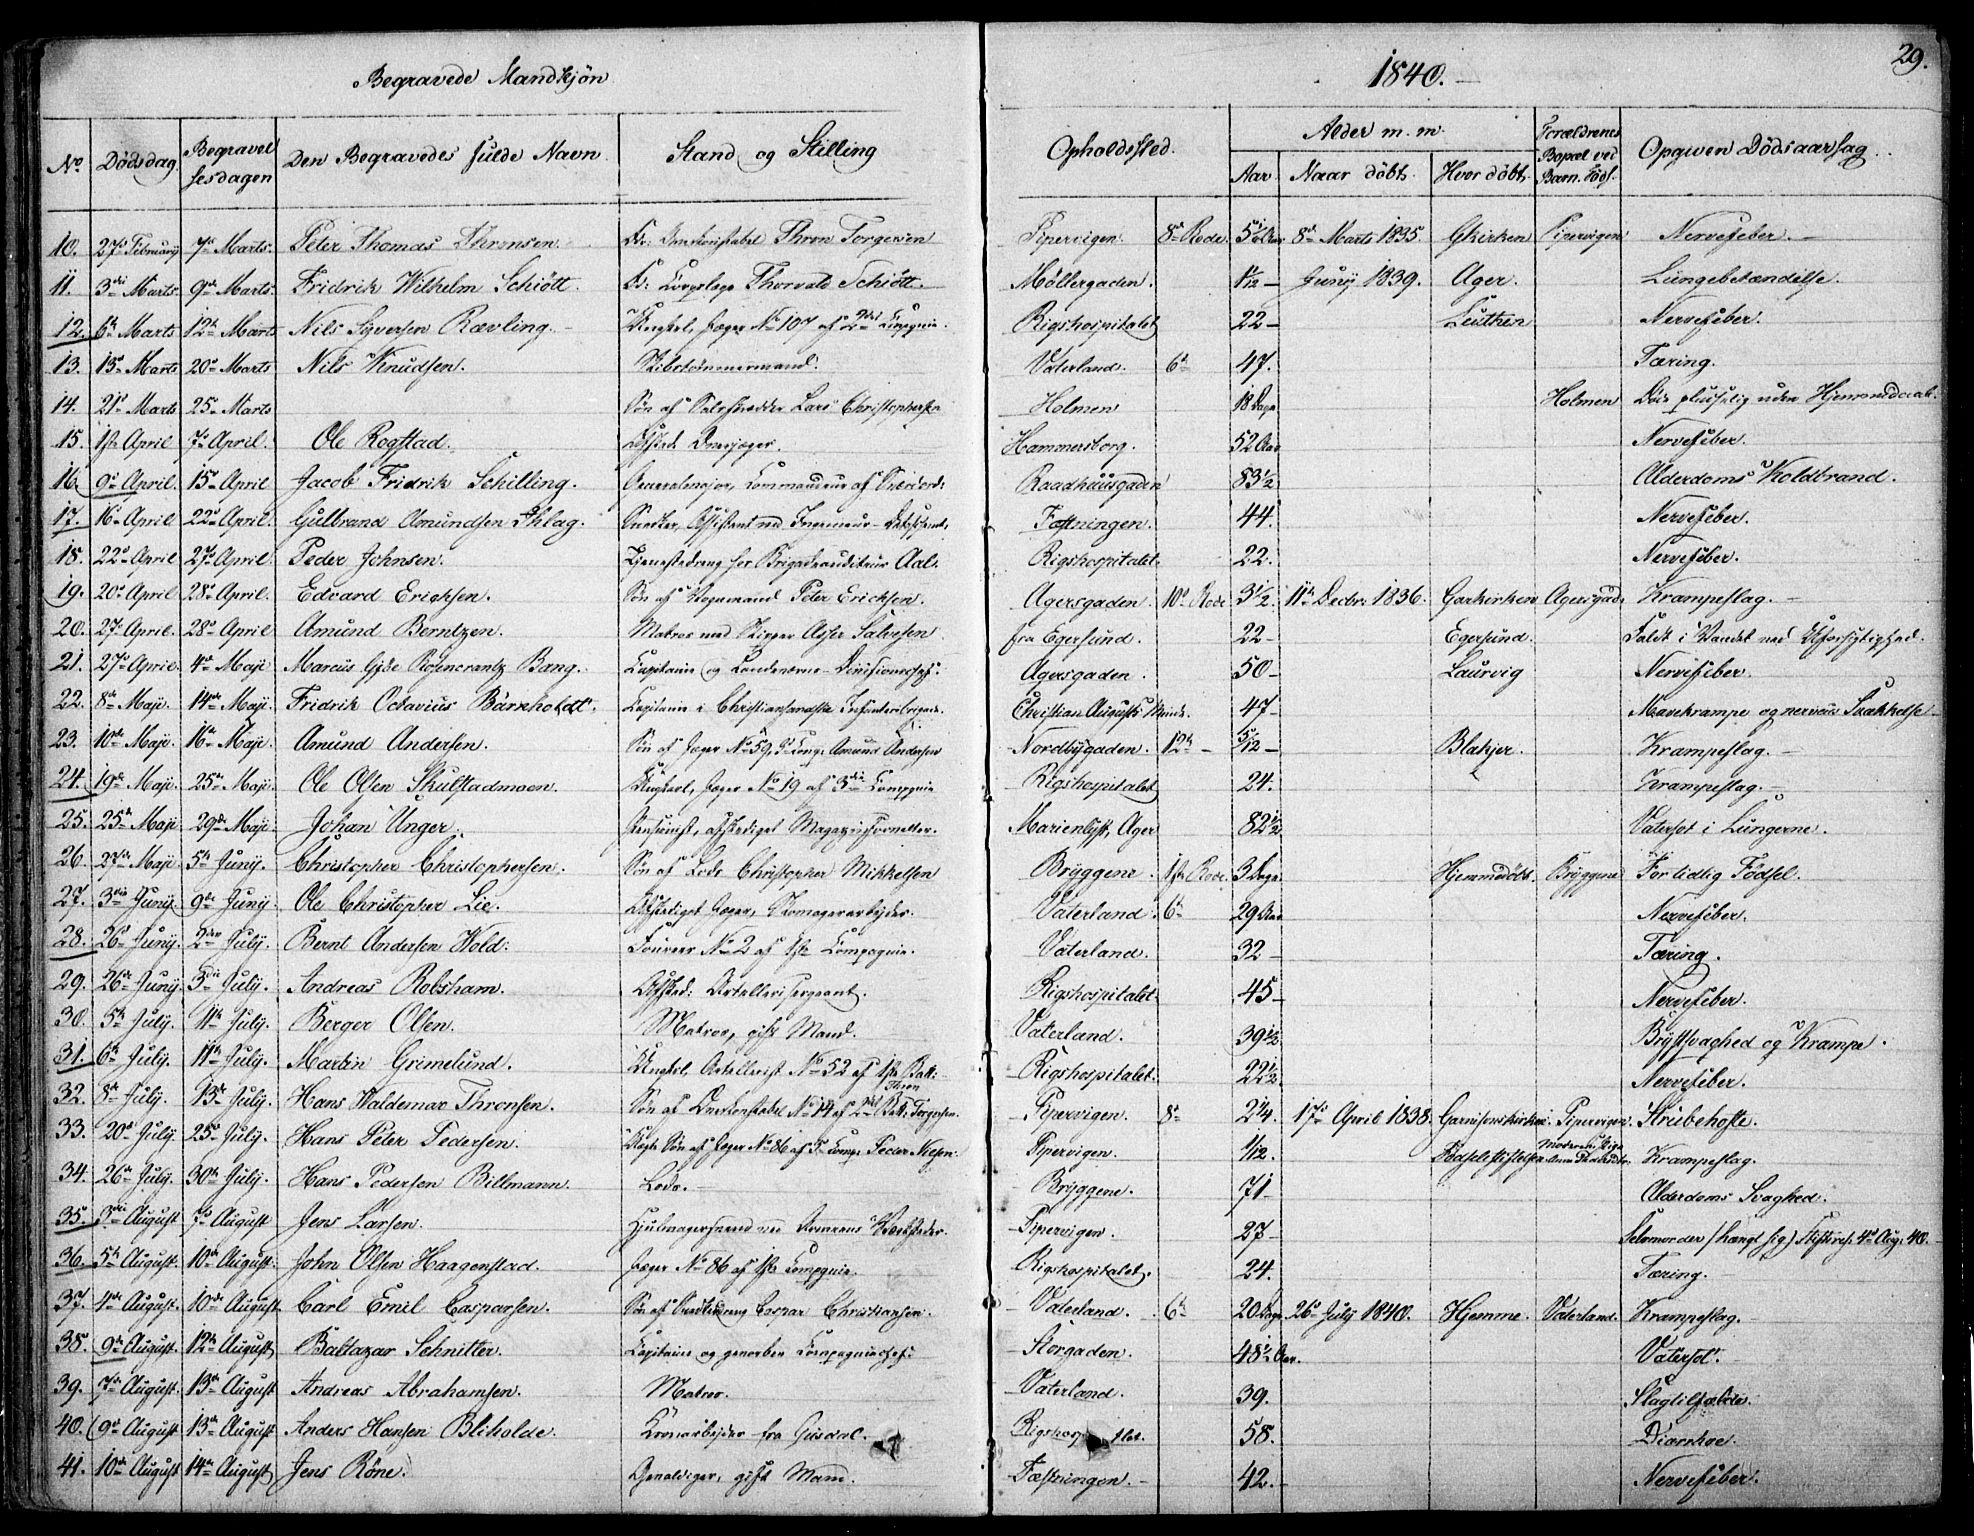 Begravede Mandkjøn
1840.
29.
No. Dødsdag. Begravelsesdagen Den Begravedes fulde Navn. Stand og Stilling Opholdssted. Alder m. m. Aar Naar døbt. Hvor døbt. Forældrenes Bopæl ved Barn. Føds. Opgiven Dødsaarsag.
10. 27de February 7de Marts. Peter Thomas Thronsen. Thron Torgersen Pipervigen. 8de Rode. 8de Marts 1835. Gkirken Pipervigen Nervefeber.
11. 3die Marts. 9de Marts. Fridrik Wilhelm Schiött. Thorvald Schiött. Møllergaden. 1/12 Juny 1839. Ager. Lungebetændelse.
12. 6te Marts 12te Marts Nils Syversen Rævling. Jæger No 107 af 2det Compagnie. Rigshospitalet 22 Leuthen Nervefeber.
13. 13de Marts 20de Marts Nils Knudsen. Skibstømmermand. Vaterland. 6te 47. Tæring.
14. 21de Marts 25de Marts Søn af Lars Christophersen Holmen 18 Dage Holmen Død pludselig uden Hjemmedaab.
15. 1ste April 7de April. Ole Rogstad. Hammersborg. 52 Aar Nervefeber.
16. 9de April. 15de April Jacob Fridrik Schilling. Generalmajor, Commandeur af Sværdord: Raadhuusgaden 83 1/2 Alderdoms Koldbrand.
17. 16de April 22de April. Gulbrand Amundsen Fæstningen. 44. Nervefeber.
18. 22de April 27de April. Peder Johnsen. Tjenestedreng hos Brigadeauditeur Aal. Rigshospitalet. 22. Nervefeber.
19. 20de April 28de April. Edvard Erichsen. Søn af Vognmand Peter Ericksen. Agersgaden 10de Rode 3 1/2. 11te Decbr. 1836. Garkirken Agersgad. Krampeslag.
20. 27de April. 28de April Amund Berntzen. Matros med Skipper Asser Salvesen fra Egersund. 22 Egersund. Faldt i Vandet ved Uforsigtighed.
21. 27de April. 4de Maje Marcus Gjøe Rosencrantz Bang. Capitaine og Landeværns-Divisionschef. Agersgaden. 50 Laurvig Nervefeber.
22. 8de Maje. 14de Maje. Fridrik Octavius Bärnholdt. Capitaine i Christiansandske Infanteribrigade. Christian Augusts Minde. 47 Mavekrampe og nerveus Svækkelse
23. 10de Maje. 16de Maje. Amund Andersen. Søn af Jæger No 59, 5. Comp. Amund Andersen Nordbygaden. 12te 5/12 Blakjer. Krampeslag.
24. 19de Maje. 25de Maje. Ole Olsen Skulstadmoen. Ungkarl, Jæger No 19 af 3die Compagnie Rigshospitalet 24. Krampeslag.
25. 25de Maje 29de Maje. Johan Unger. Pensionist, afskediget Magazinforvalter. Marienlyst, Ager 82 1/2 Vatersot i Lungerne.
26. 27de Maje 5te Juny. Christopher Christophersen. Søn af Lods Christopher Mikkelsen Bryggene. 1ste Rode. 3 Dage Hjemmedøbt. Bryggene For tidlig Fødsel.
27. 3die Juny. 9de Juny. Ole Christopher Lie. Afskediget Jæger, Skomagerarbeyder. Vaterland. 6te 29 Aar Nervefeber.
28. 26de Juny. 2den July. Bernt Andersen Wold. Fourer No 2 af 1ste Compagnie. Vaterland. 32 Tæring.
29. 26de Juny 3die July. Andreas Robsham. Afsked: Artillerisergeant. Rigshospitalet 45 Nervefeber.
30. 5te July. 11te July. Berger Olsen. Matros, gift Mand. Vaterland. 39 1/2 Brystsvaghed og Krampe.
31. 6te July. 11te July. Martin Grimelund. Ungkarl, Artillerist No 52 af 1ste Batt: Rigshospitalet. 22 1/2 Nervefeber.
32. 8de July. 13de July. Hans Waldemar Thronsen. Søn af Overkonstabel No 14 af 2det Batt. Thron Torgersen. Pipervigen. 8de 2 1/4. 17de April 1838. Garnisonskirken. Pipervigen. Strubehoste.
33. 20de July. 25de July. Hans Peter Pedersen. Uægte Søn af Jæger No 86 af 5te Comp. Peder Nielsen. Pipervigen. 1/12. Fødselsstiftelsen Krampeslag.
34. 26de July. 30de July. Hans Pedersen Billmann. Lods. Bryggene. 71 Alderdoms Svaghed.
35. 3die August 7de August Jens Larsen. Hjulmagersvend ved Armeens Værksteder. Pipervigen. 27 Selvmorder (hængt sig) Stiftsres. 4de Aug. 40.
36. 5te August. 10de August. John Olsen Haagenstad. Jæger No 86 af 1ste Compagnie. Rigshospitalet. 24. Tæring.
37. 4de August. 10de August. Carl Emil Casparsen. Søn af Caspar Christiansen. Vaterland. 6te 20 Dage 26de July 1840. Hjemme. Vaterland. Krampeslag.
38. 9de August. 12te August. Baltazar Schnitter. Capitaine og geworben Compagniechef. Storgaden. 48 1/2 Aar. Vatersot.
39. 7de August. 13de August Andreas Abrahamsen. Matros. Vaterland. 39. Slagtilfælde.
40. 9de August 13de August Anders Hansen Bliholde. fra Gusdal. Rigshospitalet. 58. Diarrhoe.
41. 10de August 14de August Jens Röne. Gevaldiger, gift Mand. Fæstningen. 42. Nervefeber.